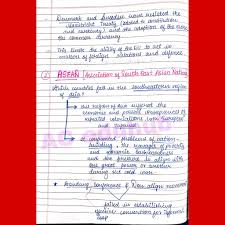 Denmark and Sweden have resisted the
Maastricht Treaty (related to constitution
and currency) and the adoption of the euro
the common currency
This limits the ability of the EU to act in
matters of foreign relations and defence
ASEAN (Association of South East Asian Nation)
Which countries fall in the southeastern region
of Asia?
this region of Asia suffered the
economic and political consequences of
repeated colonialisms, both European
and Japanese
It confronted problems of nation-
building, the ravages of poverty
and economic backwardness
and the pressure to align with
one great power or another
during the cold war
Bandung Conference & Non-align movement
failed in establishing